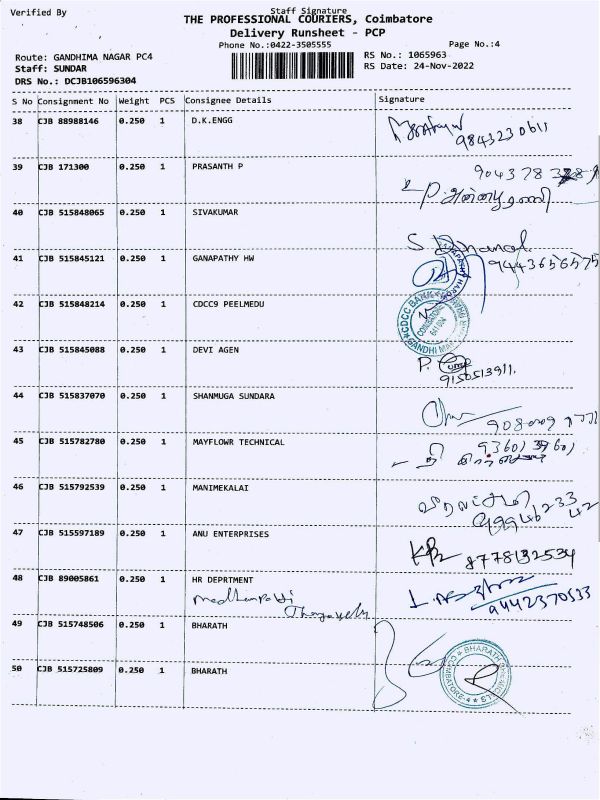 Verified By Staff Signature
THE PROFESSIONAL COURIERS, Coimbatore
Delivery Runsheet - PCP
Phone No.:0422-3505555 Page No.:4
Route: GANDHIMA NAGAR PC4 RS No.: 1065963
Staff: SUNDAR RS Date: 24-Nov-2022
DRS No.: DCJB106596304
S No Consignment No Weight PCS Consignee Details Signature
38 CJB 88988146 0.250 1 D.K.ENGG
9843230611
39 CJB 171300 0.250 1 PRASANTH P
40 CJB 515848065 0.250 1 SIVAKUMAR
41 CJB 515845121 0.250 1 GANAPATHY HW 9443656575
42 CJB 515848214 0.250 1 CDCC9 PEELMEDU
43 CJB 515845088 0.250 1 DEVI AGEN
9150513911.
44 CJB 515837070 0.250 1 SHANMUGA SUNDARA
45 CJB 515782780 0.250 1 MAYFLOWR TECHNICAL
46 CJB 515792539 0.250 1 MANIMEKALAI
47 CJB 515597189 0.250 1 ANU ENTERPRISES
8778132534
48 CJB 89005861 0.250 1 HR DEPRTMENT
9442370533
49 CJB 515748506 0.250 1 BHARATH
50 CJB 515725809 0.250 1 BHARATH